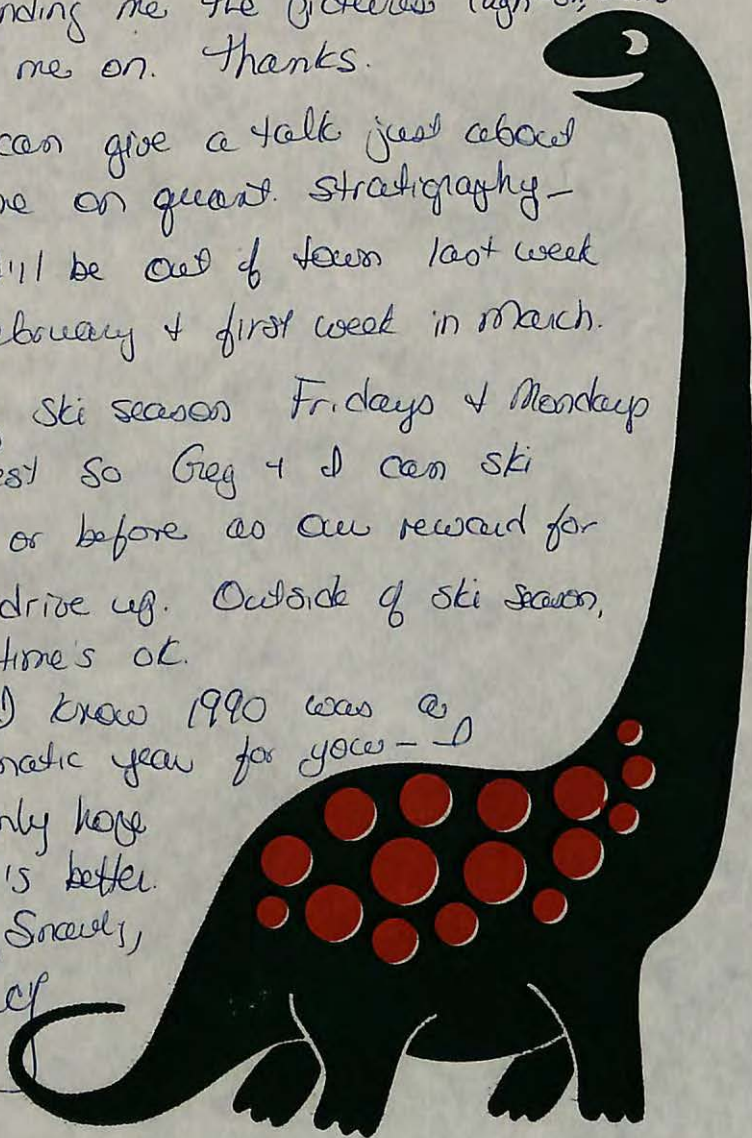 nding me the pictures
me on. Thanks.
can give a talk just about
ne on quant. stratigraphy—
'll be out of town last week
ebruary & first week in March.
ski season Fridays & Mondays
est so Greg & I can ski
or before as our reward for
drive up. Outside of ski season,
time's ok.
I know 1990 was a
matic year for you— I
nly hope
's better.